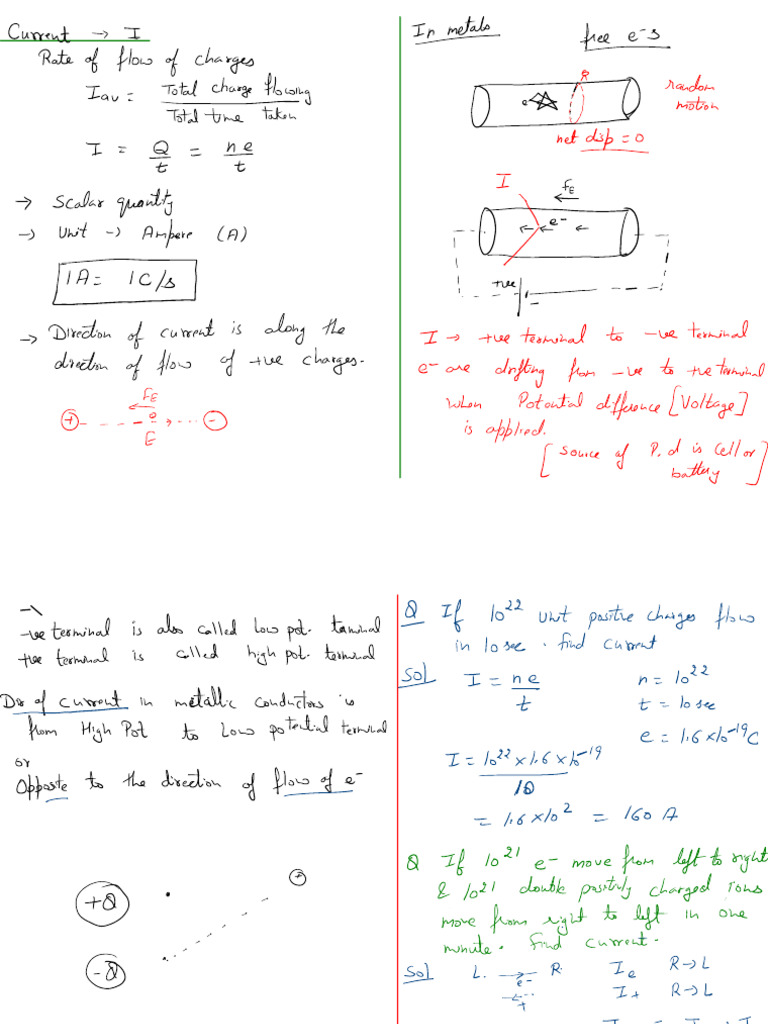 Current → I
Rate of flow of charges
Iav = Total charge flowing
Total time taken
I = Q/t = ne/t
→ Scalar quantity
→ Unit → Ampere (A)
1A = 1C/s
→ Direction of current is along the
direction of flow of +ve charges.
FE
+ -
E
In metals
free e-s
R
e-
random
motion
net disp = 0
I
FE
e-
+ve -
I → +ve terminal to -ve terminal
e- are drifting from -ve to +ve terminal
when Potential difference [Voltage]
is applied.
[Source of P.d is cell or
battery]
-ve terminal is also called Low pot. terminal
+ve terminal is called high pot. terminal
Dir of current in metallic conductors is
from High Pot to Low potential terminal
or
Opposte to the direction of flow of e-
+Q
+
-Q
Q If 10^22 unit positve charges flow
in 10 sec. find current
Sol I = ne/t n = 10^22
t = 10 sec
e = 1.6×10^-19 C
I = 10^22 × 1.6 × 10^-19
10
= 1.6×10^2 = 160 A
Q If 10^21 e- move from left to right
& 10^21 double positively charged ions
move from right to left in one
minute. Find current.
Sol L. → R. Ie R→L
e-
+ I+ R→L